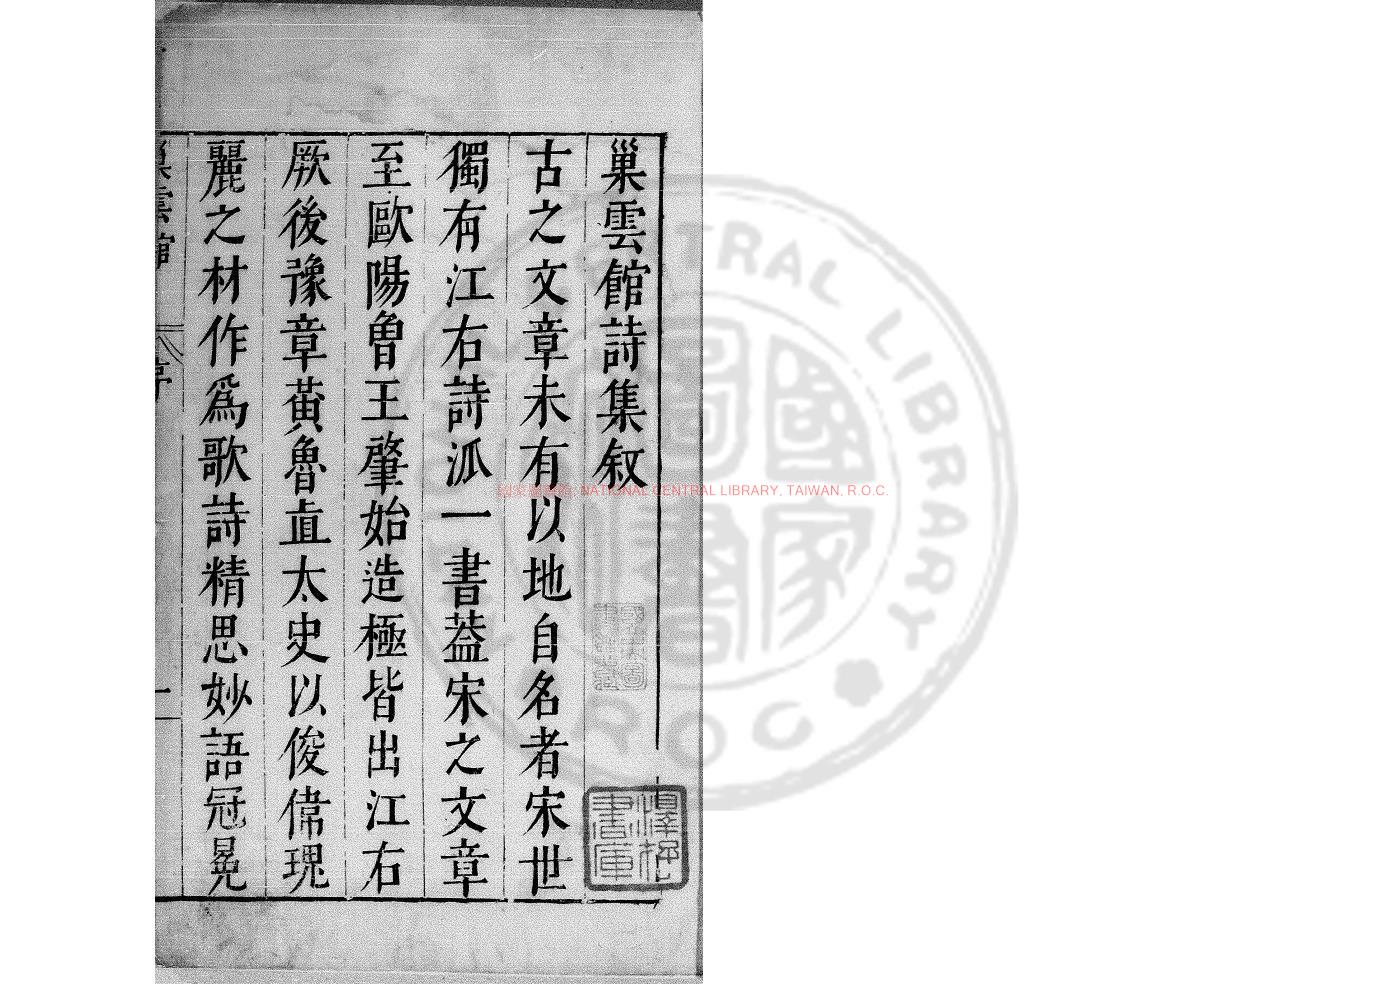 巢雲館詩集叙
古之文章未有以地自名者宋世
獨有江右詩派一書葢宋之文章
至歐陽曾王肇始造極皆出江右
厥後豫章黃魯直太史以俊偉瑰
麗之材作爲歌詩精思妙語冠冕
巢雲館
序
一
國家圖書館, NATIONAL CENTRAL LIBRARY, TAIWAN, R.O.C.
CENTRAL LIBRARY
ROC
國家圖書